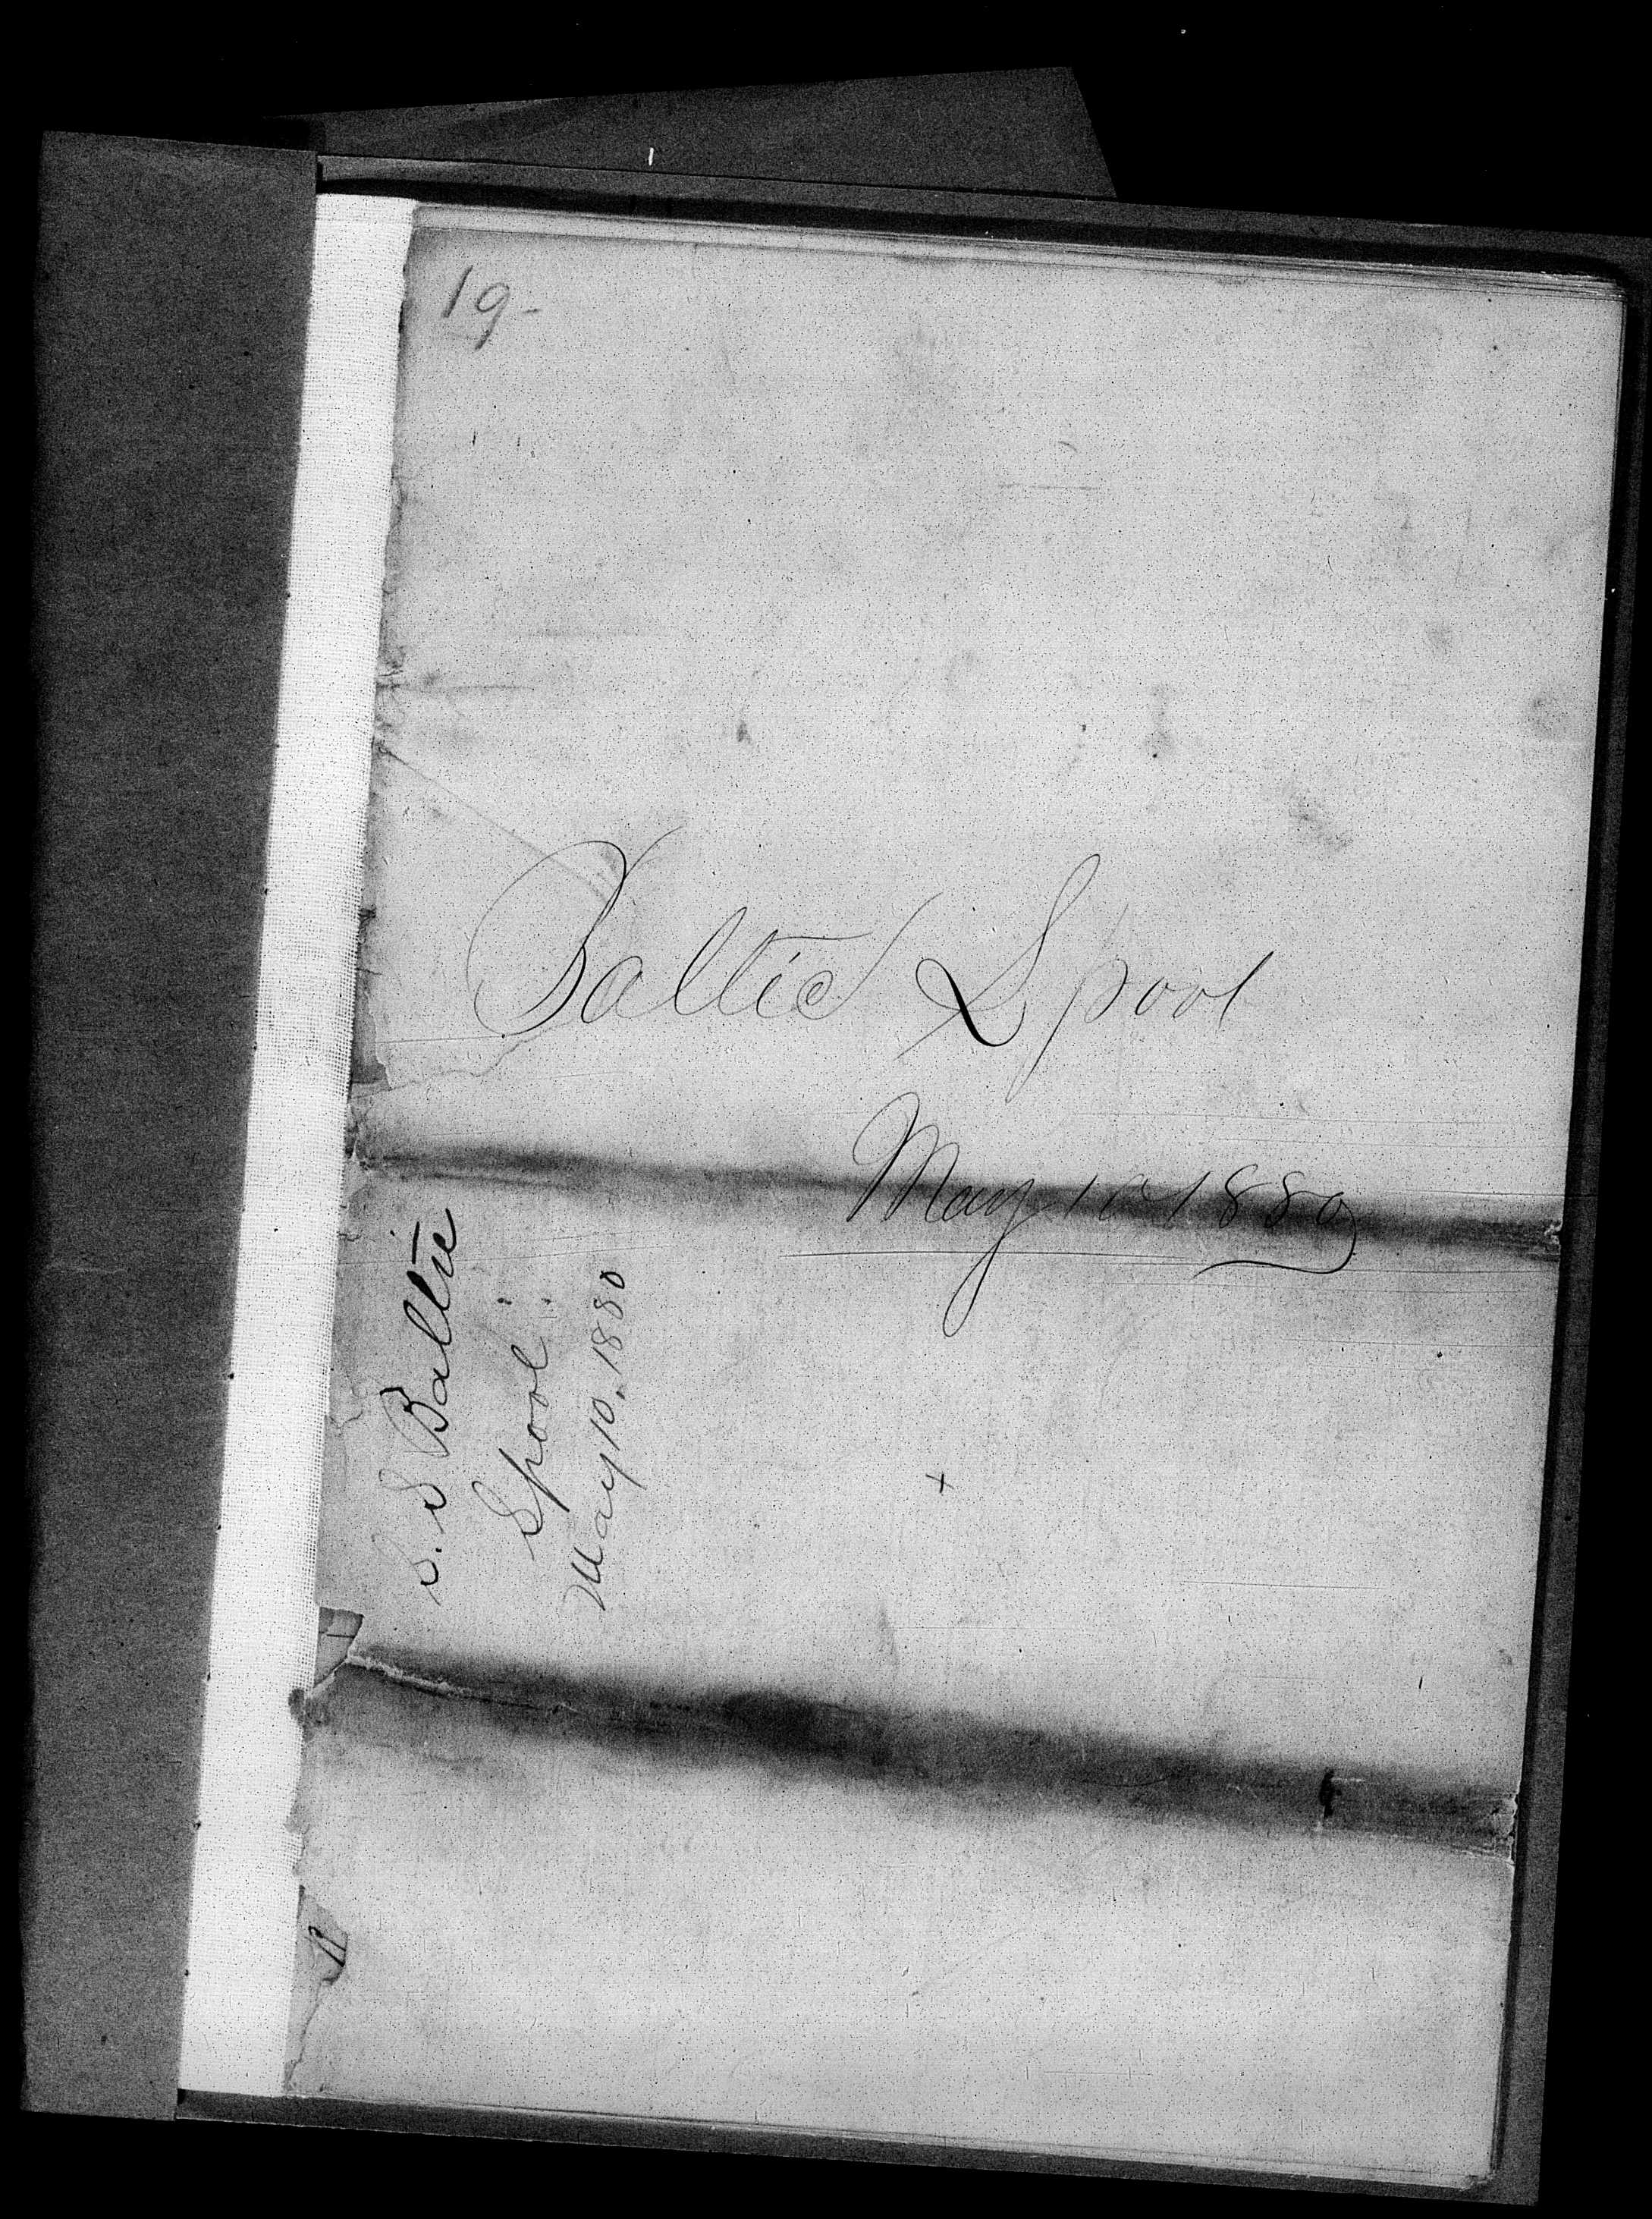 19-
Baltic Spool
May 10 1880
S. S Baltic
Spool
May 10. 1880